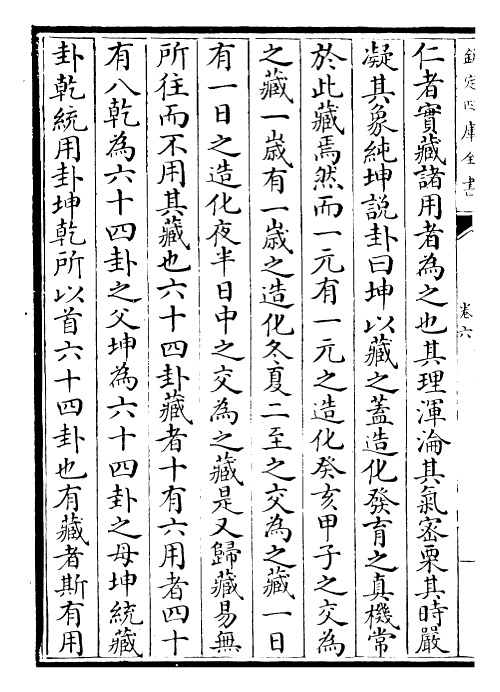 欽定四庫全書
卷六
仁者實藏諸用者為之也其理渾淪其氣宻栗其時嚴
凝其象純坤說卦曰坤以藏之蓋造化發育之真機常
於此藏焉然而一元有一元之造化癸亥甲子之交為
之藏一嵗有一嵗之造化冬夏二至之交為之藏一日
有一日之造化夜半日中之交為之藏是又歸藏易無
所往而不用其藏也六十四卦藏者十有六用者四十
有八乾為六十四卦之父坤為六十四卦之母坤統藏
卦乾統用卦坤乾所以首六十四卦也有藏者斯有用